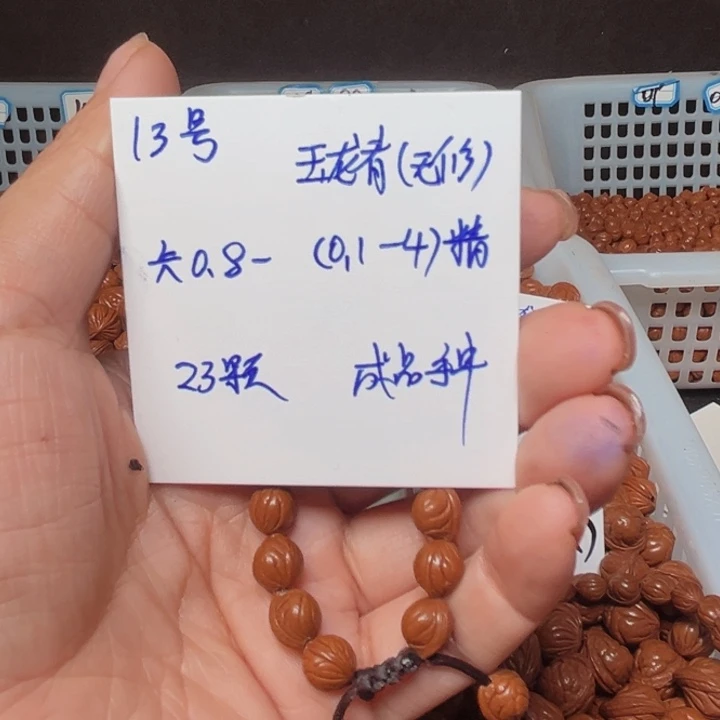 13号
玉龙肴(无修)
卡0.8- (0.1-4)精
23颗 成品手串